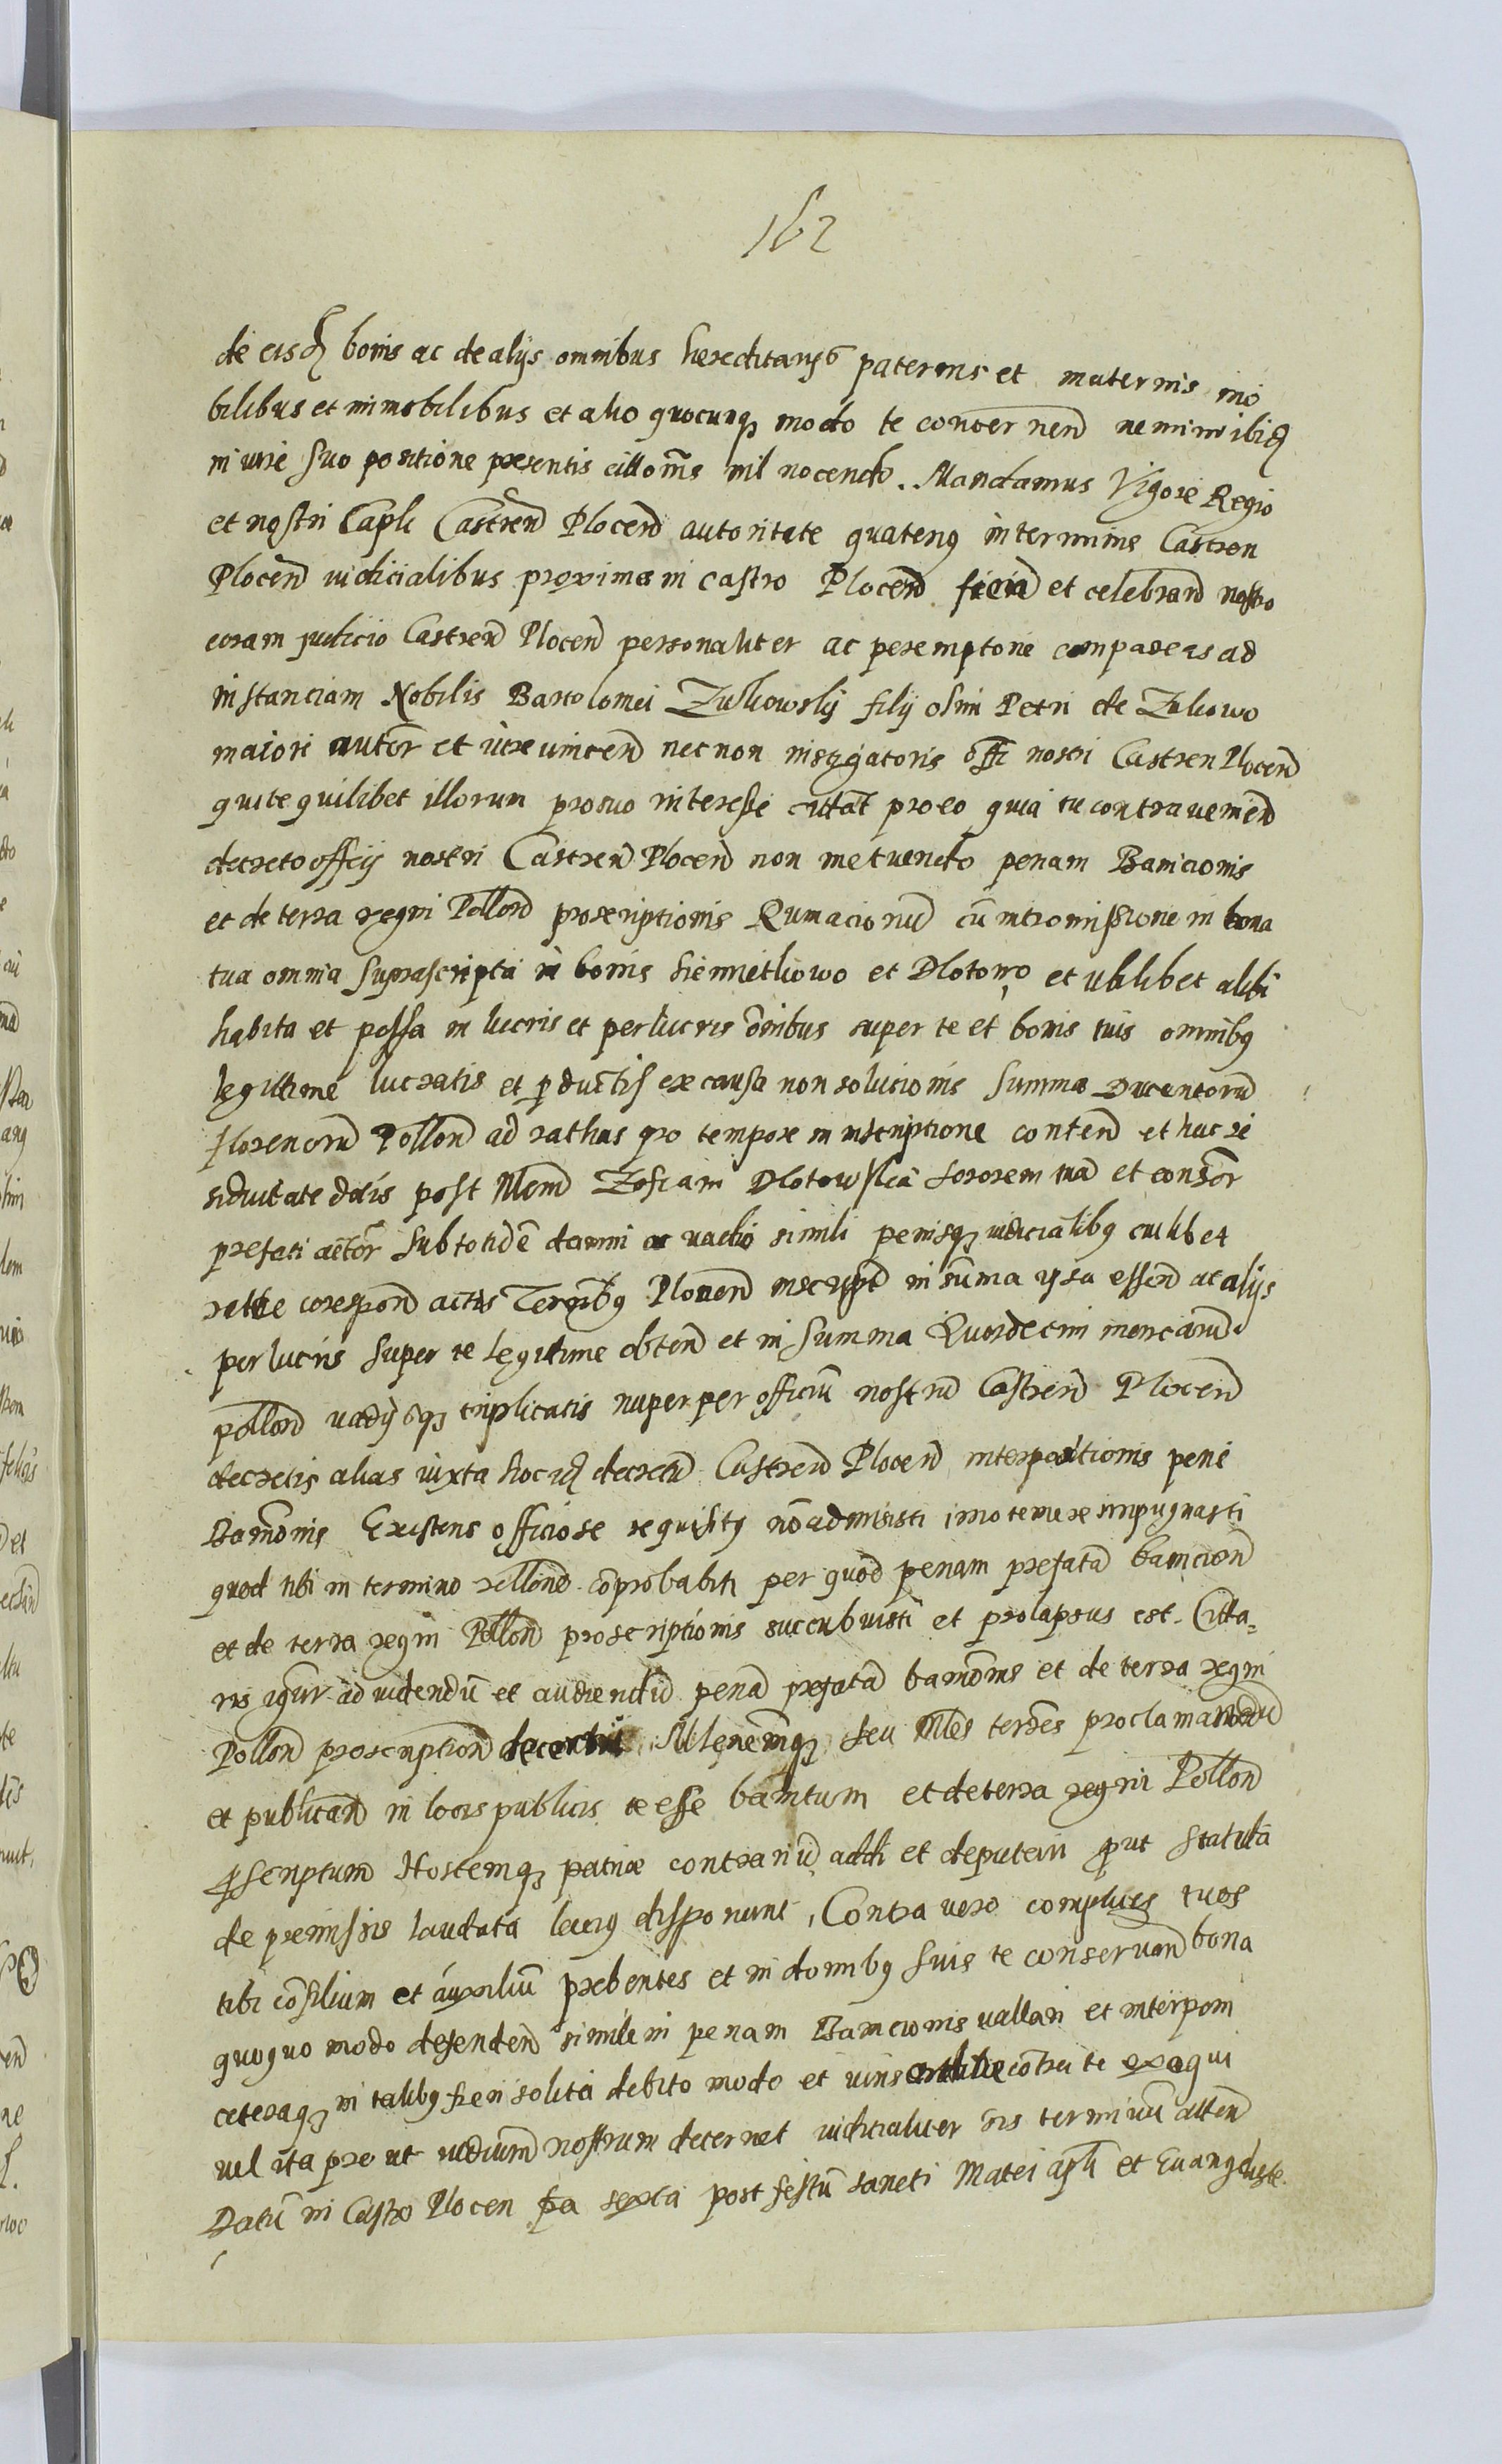 162
de eisd bonis ac de alijs omnibus hereditarijs paternis et maternis mo
bilibus et immobilibus et alio quocunq modo te concernen nemini ibid
in iure suo positione presentis nil nocendo. Mandamus Vigore Regio
et nostri Capli Castren Plocen autoritate quatenq in termins Castren
Plocen iudicialibus proxime in castro Plocen fien et celebran nostro
coram judicio Castren Plocen personaliter ac peremptorie compareas ad
instanciam Nobilis Bartolomei Zukowskij filij olim Petri de Zukowo
maiori autor et iure uincen nec non instigatoris offi nostri Castren Plocen
qui te quilibet illorum pro suo interesse cittat pro eo quia tu contraveniend
decreto officij nostri Castren Plocen non metuendo penam Banicionis
et de terra regni Pollon proscriptionis Rumacionu cu intromissione in bona
tua omnia suprascripta in bonis et Dlotowo et ubilibet alibi
habita et possa in lucris et perlucris oibus super te et bonis tuis omnibq
legittime lucratis et pductis ex causa non solucionis summe Ducentoru
florenoru Pollon ad rathas pro tempore in inscriptione conten et huc re
siduitate dotis post Nlem Zofiam Dlotowska sororem tua et consor
prefati actor sub totide damni ac vadio simili penisq iudicialibq cuilibet
rathe correspon actis Terribq Plocen inscript in suma ipsa essen ac alijs
perlucris super te legitime obten et in summa Quordecim marcaru
pollon vadijsq triplicatis nuper per officiu nostru Castren Plocen
decretis alias iuxta hoc id decretu Castren Plocen interpositionis pene
Banonis Existens officiose requisitq no admisisti imo temere impugnasti
quod tibi in termino comprobabit per quod penam prefata banicion
et de terra regni Pollon proscriptionis succubuisti et prolapsus est. Citta=
ris igitur ad uidendu et audiendu pena prefata banonis et de terra regni
Pollon proscription decerni seu terres proclamandu
et publican in locis publicis te esse banitum et de terra regni Pollon
pscriptum Hostemq patrie contrariu addi et deputari put statuta
de premissis laudata lacius disponunt, Contra vero complices tuos
tibi cosilium et auxiliu prebentes et in domibq suis te conservan bona
quoquo modo defenden similem penam Banicionis vallari et interponi
ceteraq in talibq fieri solita debito modo et iuris ordine contra te exequi
vel ita prout iudicium nostrum decernet iudicialiter sis terminu atten
Datu in Castro Plocen fa sexta post festu sancti Matei apli et Euangeliste